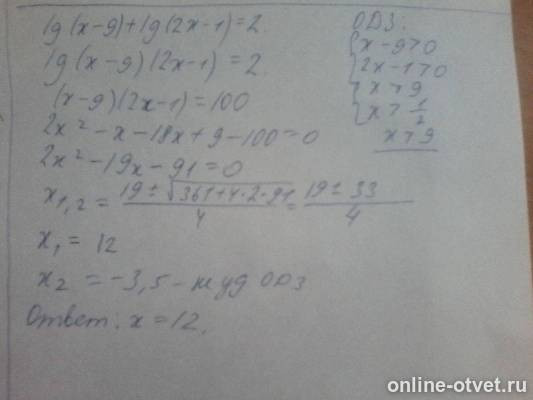 lg(x-9)+lg(2x-1)=2.
lg(x-9)(2x-1)=2.
(x-9)(2x-1)=100
2x²-x-18x+9-100=0
2x²-19x-91=0
x₁,₂ = (19±√(361+4·2·91))/4 = (19±33)/4
x₁=12
x₂=-3,5 - не уд ОДЗ
Ответ: x=12.
ОДЗ:
{x-9>0
{2x-1>0
{x>9
{x>1/2
x>9
online-otvet.ru